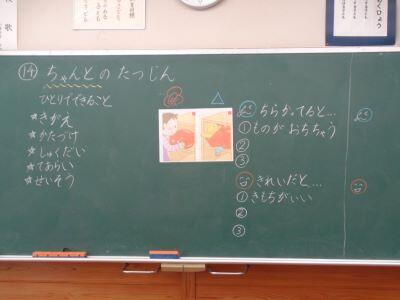 ⑭ ちゃんとの たつじん
ひとりでできること
☆きがえ
☆かたづけ
☆しゅくだい
☆てあらい
☆せいそう
ちらかってると…
① ものが おちちゃう
②
③
きれいだと…
① きもちがいい
②
③